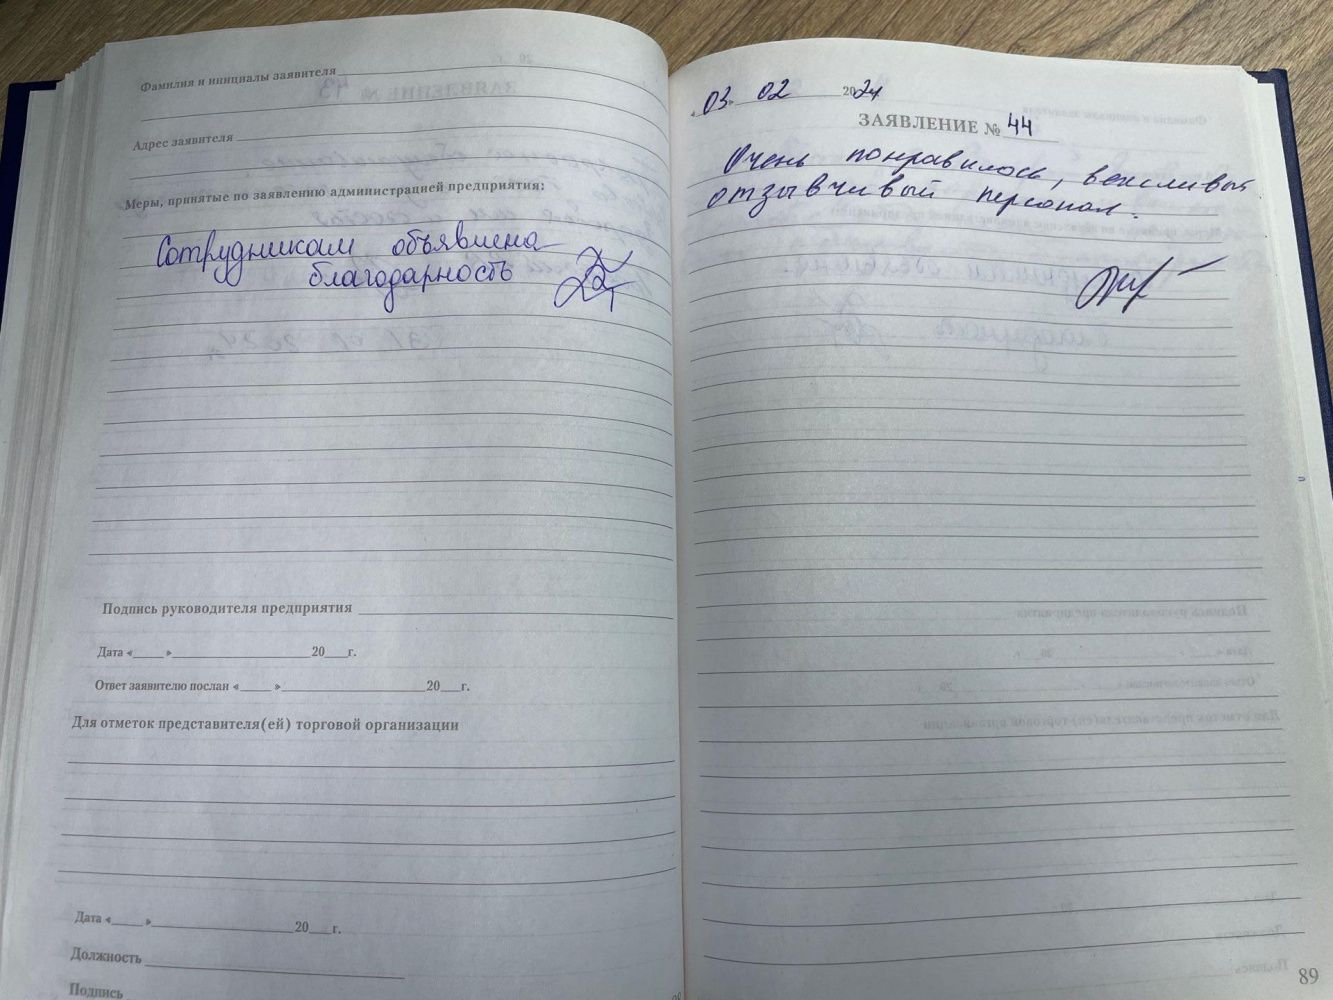 Фамилия и инициалы заявителя
Адрес заявителя
Меры, принятые по заявлению администрацией предприятия:
Сотрудникам объявлена
благодарность
Подпись руководителя предприятия
Дата «___» ___ 20___г.
Ответ заявителю послан «___» ___ 20___г.
Для отметок представителя(ей) торговой организации
Дата «___» ___ 20___г.
Должность
Подпись
«03» 02 2024
ЗАЯВЛЕНИЕ № 44
Очень понравилось, вежливый
отзывчивый персонал.
89